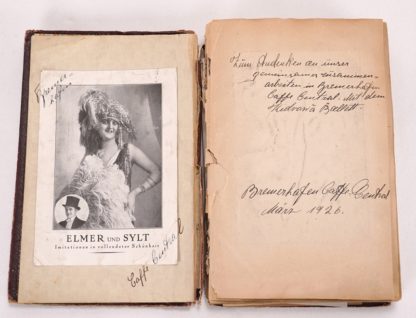 Bremer-
ELMER UND SYLT
Imitationen in vollendeter Schönheit
Caffe Central
Zum Andenken an unser
gemeinsames zusammen-
arbeiten in Bremerhafen
Caffe Central. Mit dem
Ballett.
Bremerhafen Caffe Central
März 1926.